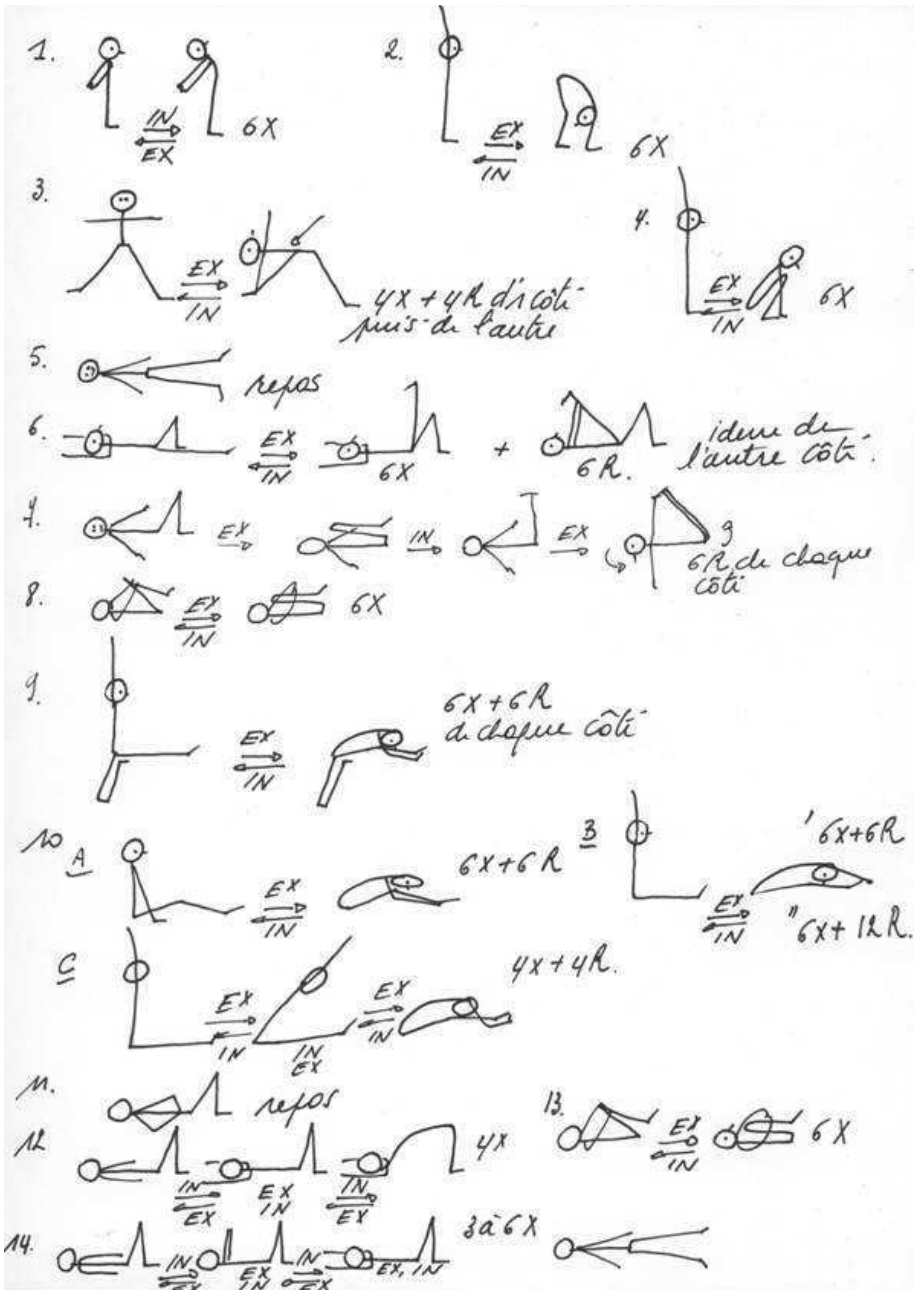 1.
IN
EX
6X
2.
EX
IN
6X
3.
EX
IN
4X + 4R d'1 côté
puis de l'autre
4.
EX
IN
6X
5.
repos
6.
EX
IN
6X
+
6R.
idem de
l'autre côté.
7.
EX
IN
EX
6R de chaque
côté
8.
EX
IN
6X
9.
EX
IN
6X + 6R
de chaque côté
10
A
EX
IN
6X + 6R
B
EX
IN
' 6X + 6R
" 6X + 12R.
C
EX
IN
IN
EX
EX
IN
4X + 4R.
11.
repos
12
IN
EX
EX
IN
IN
EX
4X
13.
EX
IN
6X
14.
IN
EX
EX
IN
IN
EX
EX, IN
3 à 6X